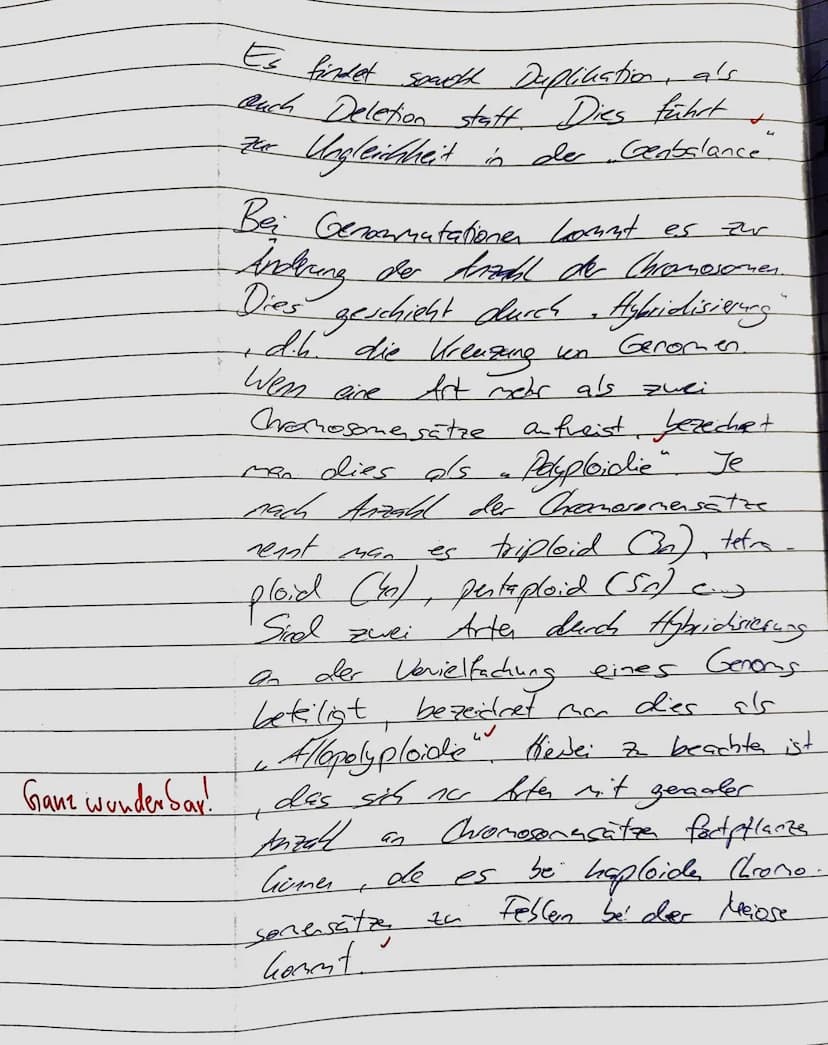 Es findet sowohl Duplikation, als
auch Deletion statt. Dies führt
zur Ungleichheit in der „Genbalance“.
Bei Genommutationen kommt es zur
Änderung der Anzahl der Chromosomen.
Dies geschieht durch „Hybridisierung“
, d.h. die Kreuzung von Genomen.
Wenn eine Art mehr als zwei
Chromosomensätze aufweist, bezeichnet
man dies als „Polyploidie“. Je
nach Anzahl der Chromosomensätze
nennt man es triploid (3n), tetra-
ploid (4n), pentaploid (5n) (...)
Sind zwei Arten durch Hybridisierung
an der Vervielfachung eines Genoms
beteiligt, bezeichnet man dies als
„Allopolyploidie“. Hierbei zu beachten ist
Ganz wunderbar!
, das sich nur Arten mit gerader
Anzahl an Chromosomensätzen fortpflanzen
können, da es bei haploiden Chromo-
somensätzen zu Fehlern bei der Meiose
kommt.